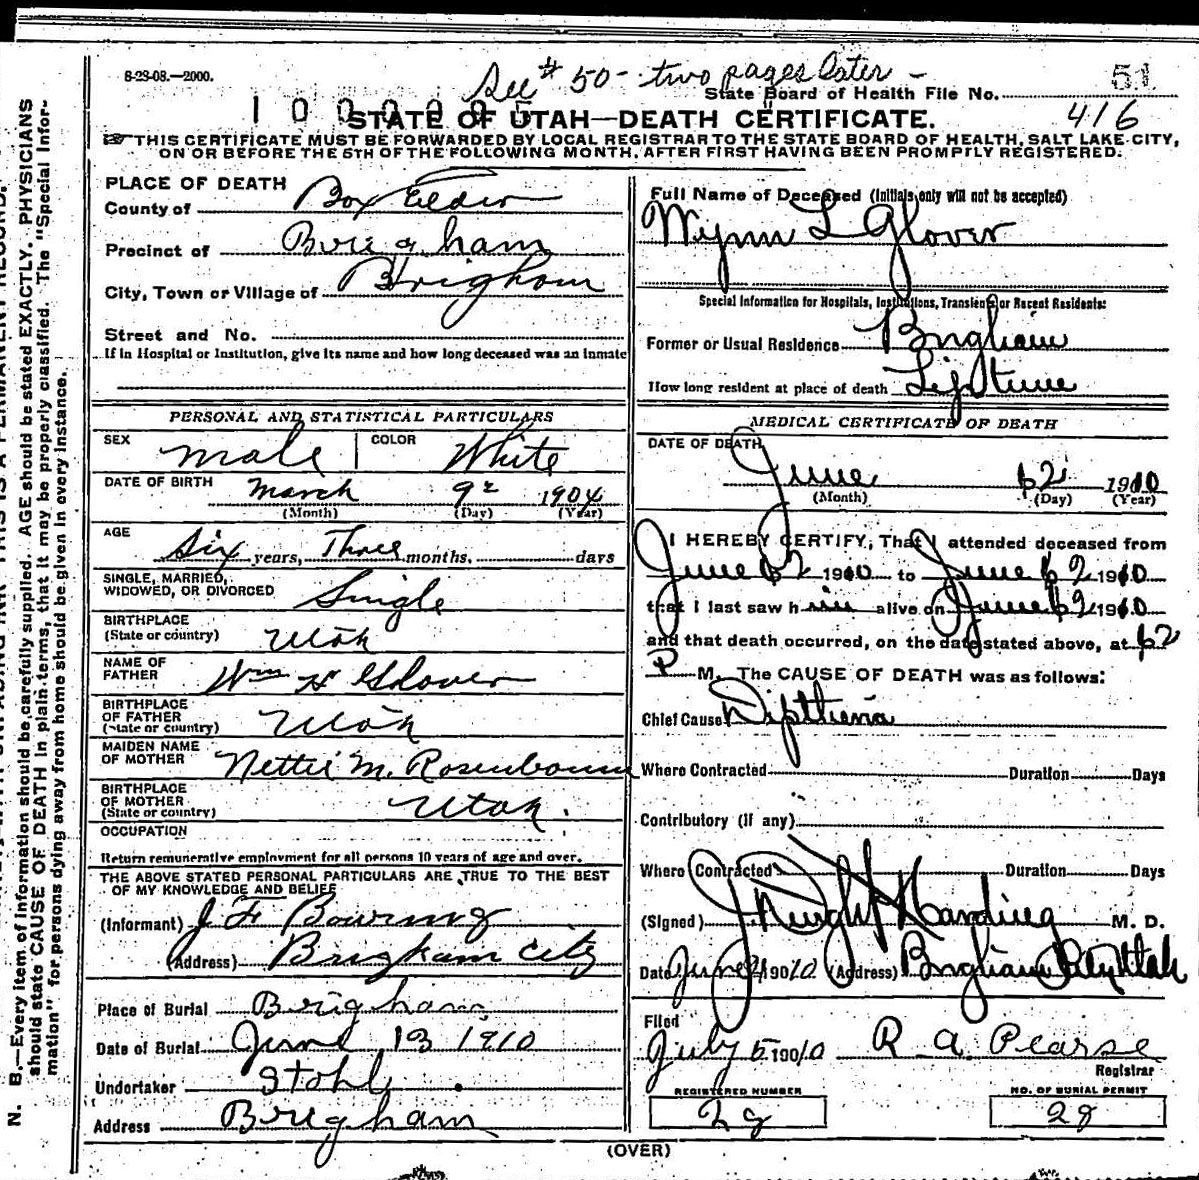 8-23-08.—2000.
See # 50 - two pages later -
51
State Board of Health File No.
1 0 0 0 0 0 5
416
STATE OF UTAH—DEATH CERTIFICATE.
THIS CERTIFICATE MUST BE FORWARDED BY LOCAL REGISTRAR TO THE STATE BOARD OF HEALTH, SALT LAKE CITY,
ON OR BEFORE THE 5TH OF THE FOLLOWING MONTH, AFTER FIRST HAVING BEEN PROMPTLY REGISTERED.
PLACE OF DEATH
County of Box Elder
Precinct of Brigham
City, Town or Village of Brigham
Street and No.
If in Hospital or Institution, give its name and how long deceased was an inmate
PERSONAL AND STATISTICAL PARTICULARS
SEX Male COLOR White
DATE OF BIRTH March 9 1904
(Month) (Day) (Year)
AGE Six years, Three months, days
SINGLE, MARRIED,
WIDOWED, OR DIVORCED Single
BIRTHPLACE
(State or country) Utah
NAME OF
FATHER Wm H Glover
BIRTHPLACE
OF FATHER
(State or country) Utah
MAIDEN NAME
OF MOTHER Nettie M. Rosenbaum
BIRTHPLACE
OF MOTHER
(State or country) Utah.
OCCUPATION
Return remunerative employment for all persons 10 years of age and over.
THE ABOVE STATED PERSONAL PARTICULARS ARE TRUE TO THE BEST
OF MY KNOWLEDGE AND BELIEF
(Informant) J F Bowring
(Address) Brigham City
Place of Burial Brigham
Date of Burial June 13 1910
Undertaker Stohl
Address Brigham
Full Name of Deceased (Initials only will not be accepted)
Wynn L Glover
Special Information for Hospitals, Institutions, Transients or Recent Residents:
Former or Usual Residence Brigham
How long resident at place of death Liftime
MEDICAL CERTIFICATE OF DEATH
DATE OF DEATH
June 12 1910
(Month) (Day) (Year)
I HEREBY CERTIFY, That I attended deceased from
June 1910 to June 1910
that I last saw h im alive on June 1910
and that death occurred, on the date stated above, at 12
P M. The CAUSE OF DEATH was as follows:
Chief Cause Diptheria
Where Contracted Duration Days
Contributory (if any)
Where Contracted Duration Days
(Signed) J Dwight Harding M. D.
Date June 1910 (Address) Brigham City Utah
Filed
July 5 1910 R. A. Pearse
Registrar
REGISTERED NUMBER NO. OF BURIAL PERMIT
28 28
(OVER)
N. B.—Every item of information should be carefully supplied. AGE should be stated EXACTLY. PHYSICIANS
should state CAUSE OF DEATH in plain terms, that it may be properly classified. The "Special Infor-
mation" for persons dying away from home should be given in every instance.